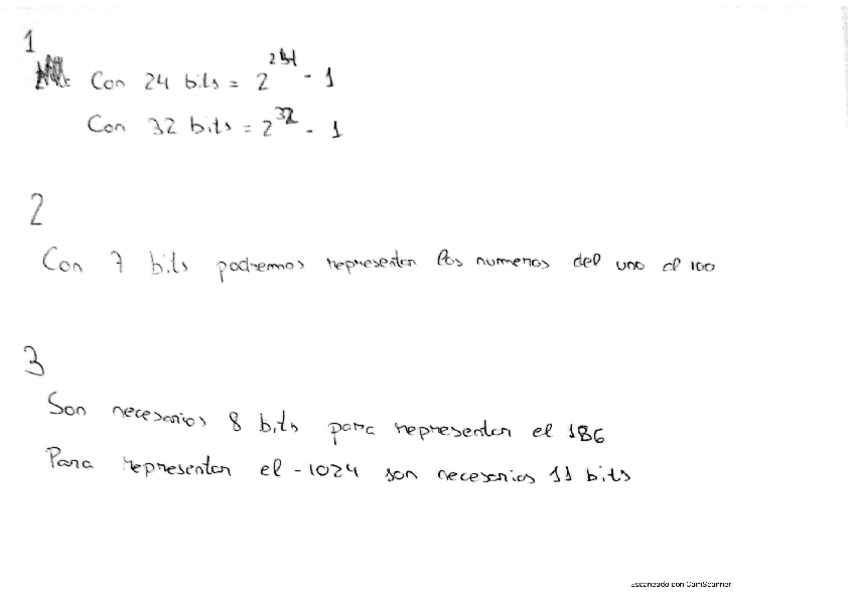 1
Con 24 bits = 2^24 - 1
Con 32 bits = 2^32 - 1
2
Con 7 bits podremos representar los numeros del uno al 100
3
Son necesarios 8 bits para representar el 186
Para representar el -1024 son necesarios 11 bits
Escaneado con CamScanner